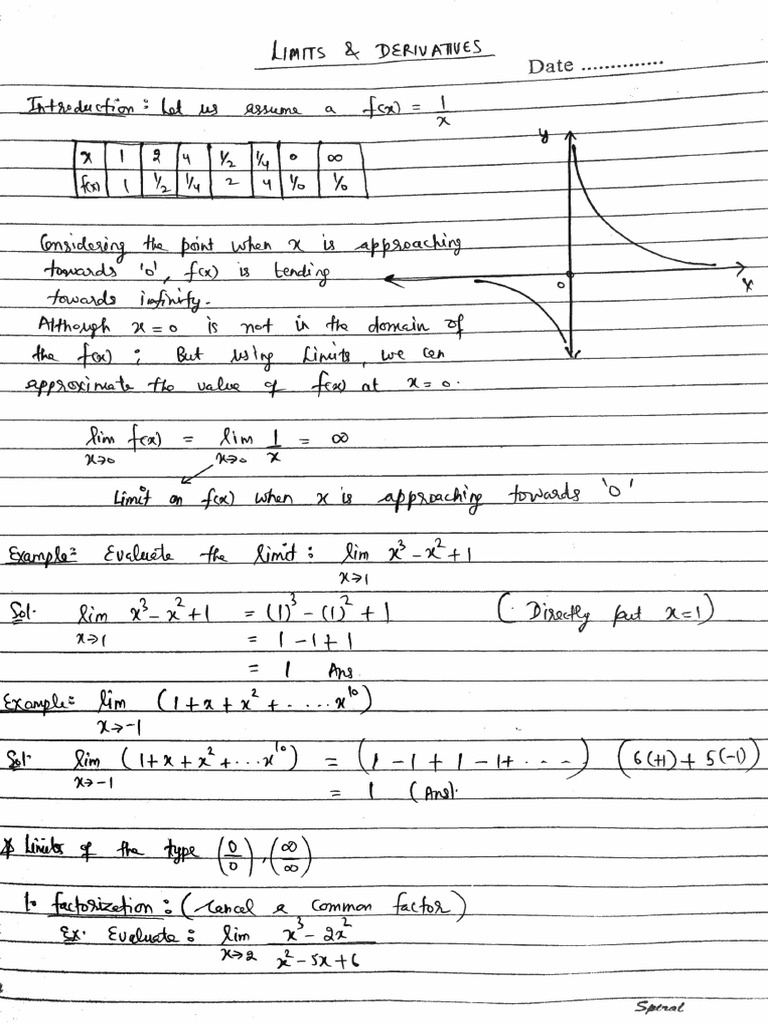 LIMITS & DERIVATIVES
Date ..............
Introduction : Let us assume a f(x) = 1/x
x 1 2 4 1/2 1/4 0 ∞
f(x) 1 1/2 1/4 2 4 1/0 1/0
y
x
0
Considering the point when x is approaching
towards '0', f(x) is tending
towards infinity.
Although x = 0 is not in the domain of
the f(x) ; But using Limits, we can
approximate the value of f(x) at x = 0.
lim x→0 f(x) = lim x→0 1/x = ∞
Limit on f(x) when x is approaching towards '0'
Example: Evaluate the limit : lim x→1 x³ - x² + 1
Sol. lim x→1 x³ - x² + 1 = (1)³ - (1)² + 1 (Directly put x=1)
= 1 - 1 + 1
= 1 Ans
Example: lim x→-1 (1 + x + x² + . . . . . x¹⁰)
Sol. lim x→-1 (1 + x + x² + ... x¹⁰) = (1 - 1 + 1 - 1 + - - - -) (6(+1) + 5(-1))
= 1 (Ans).
* Limits of the type (0/0), (∞/∞)
1. factorization : (cancel a common factor)
Ex. Evaluate : lim x→2 (x³ - 2x²)/(x² - 5x + 6)
Spiral